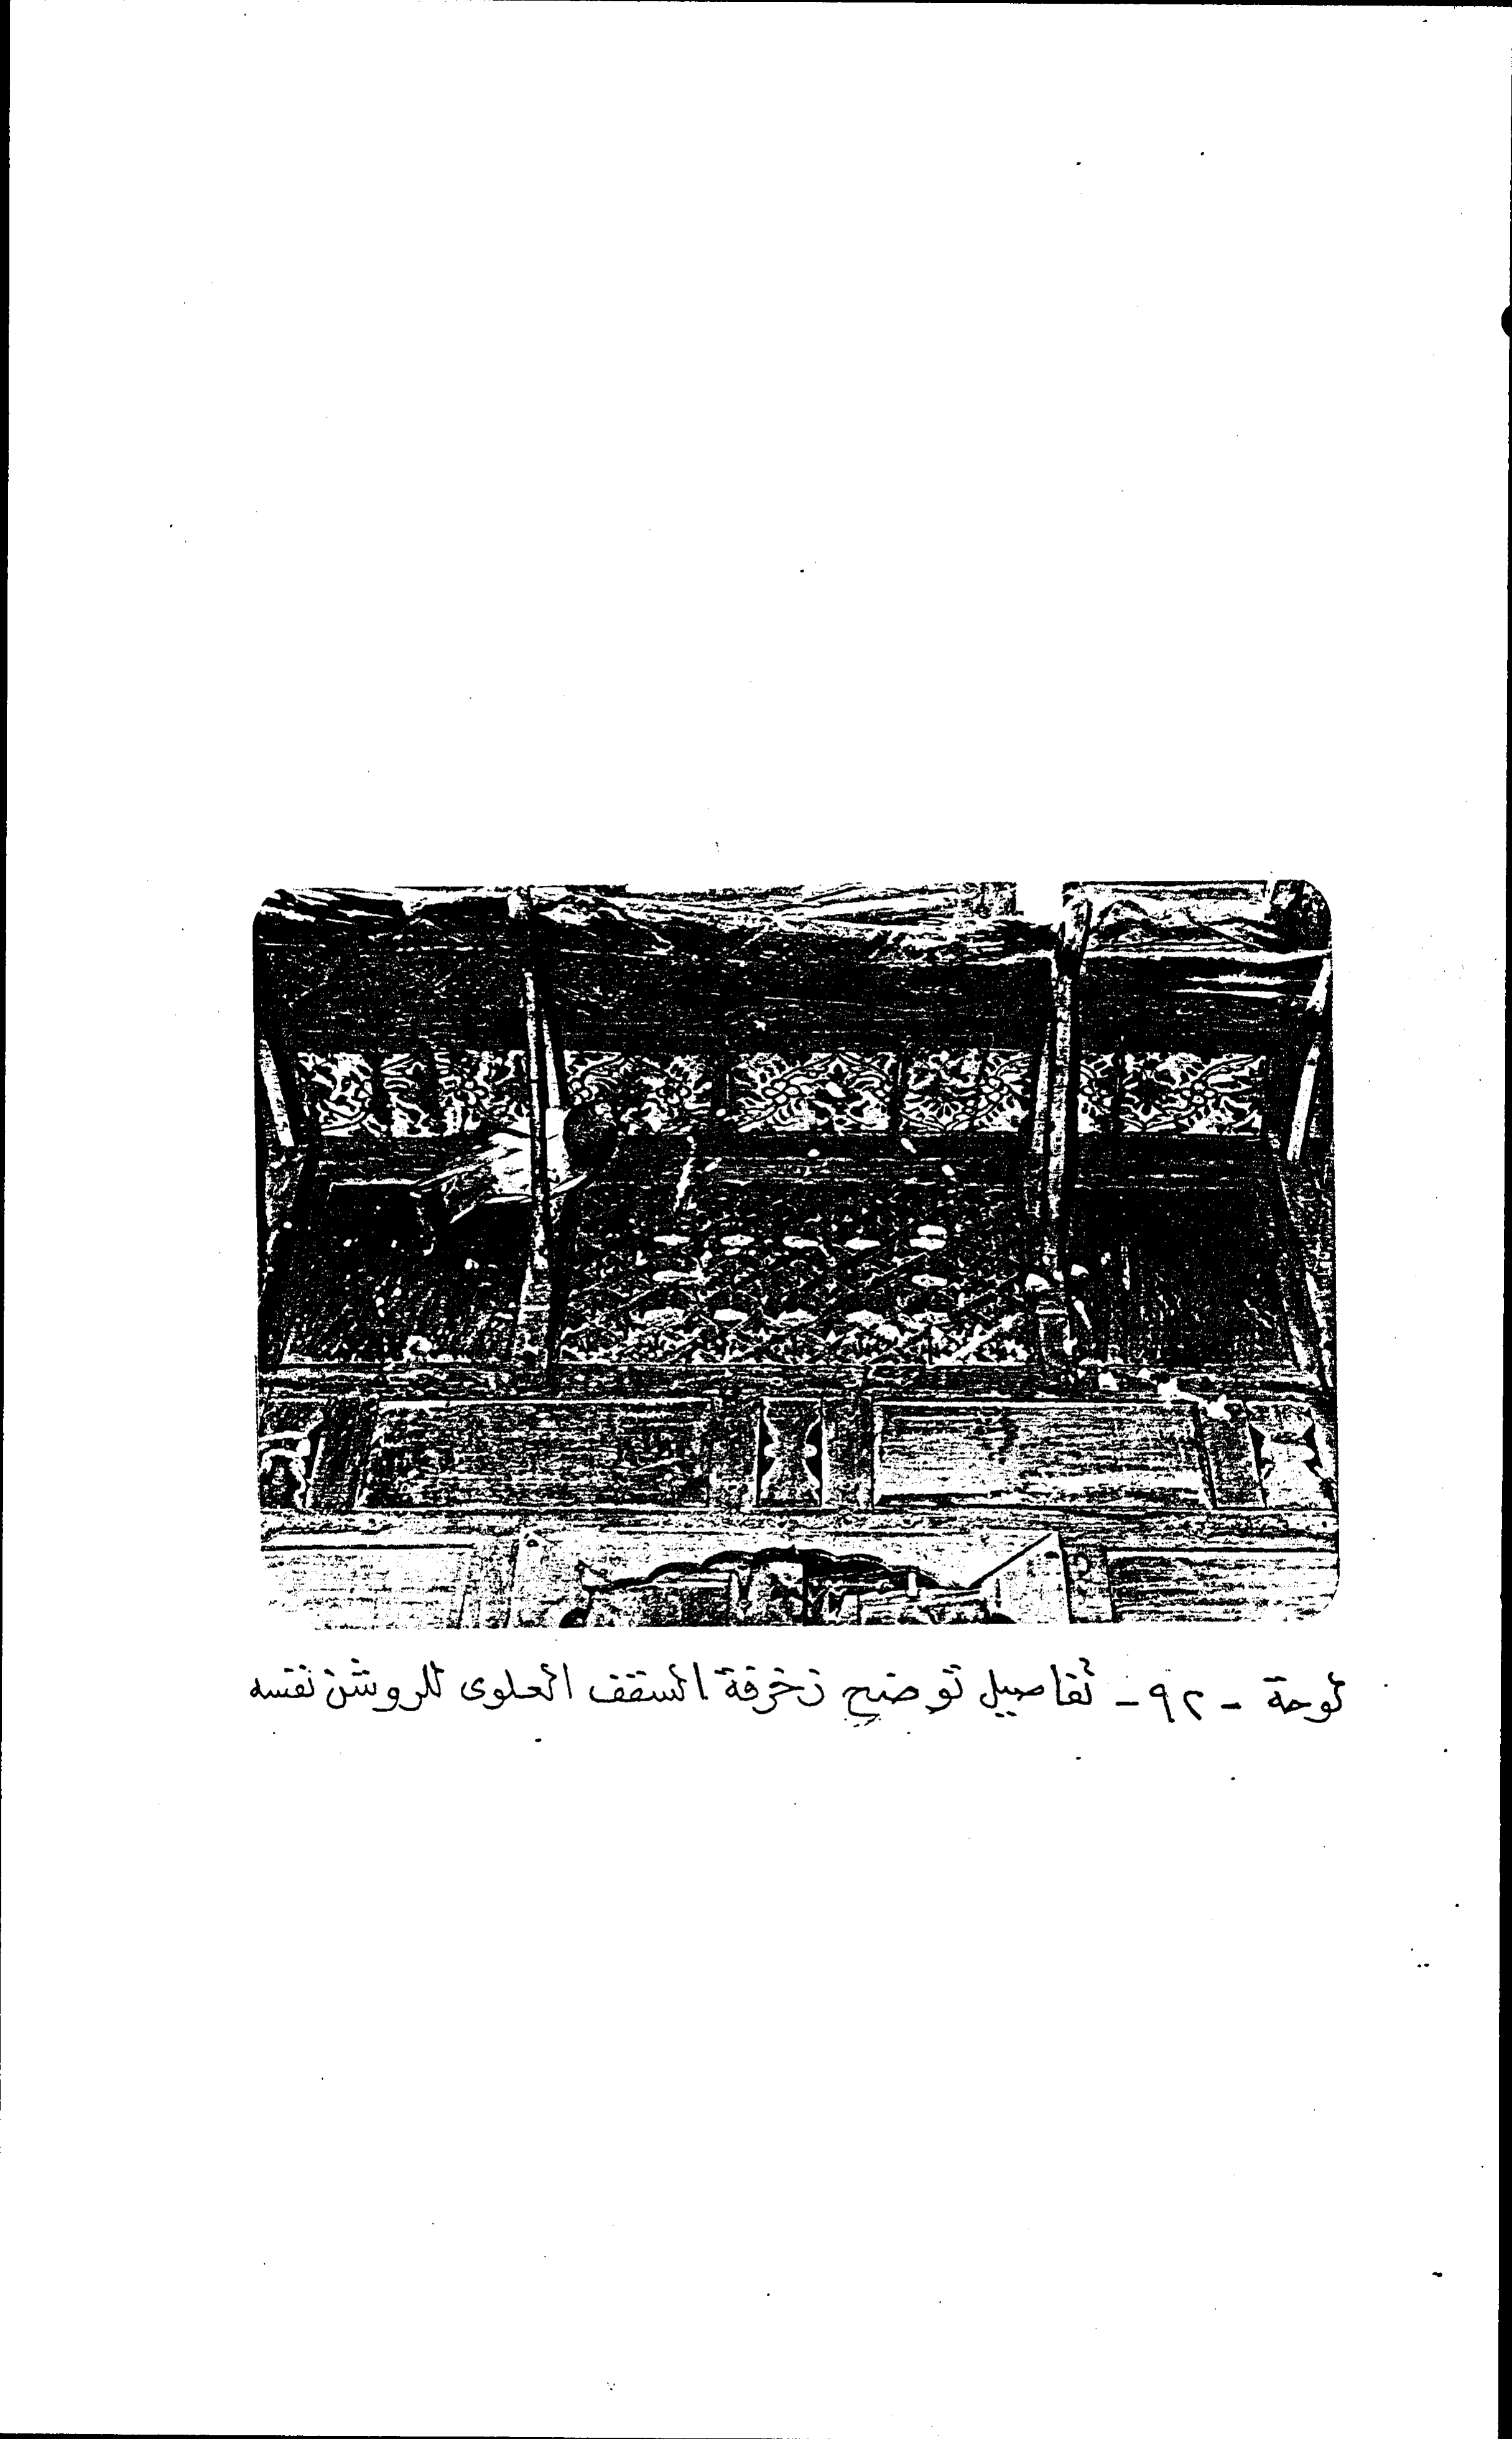 لوحة - ٩٢ - تفاصيل توضح زخرفة السقف العلوى للروشن نفسه